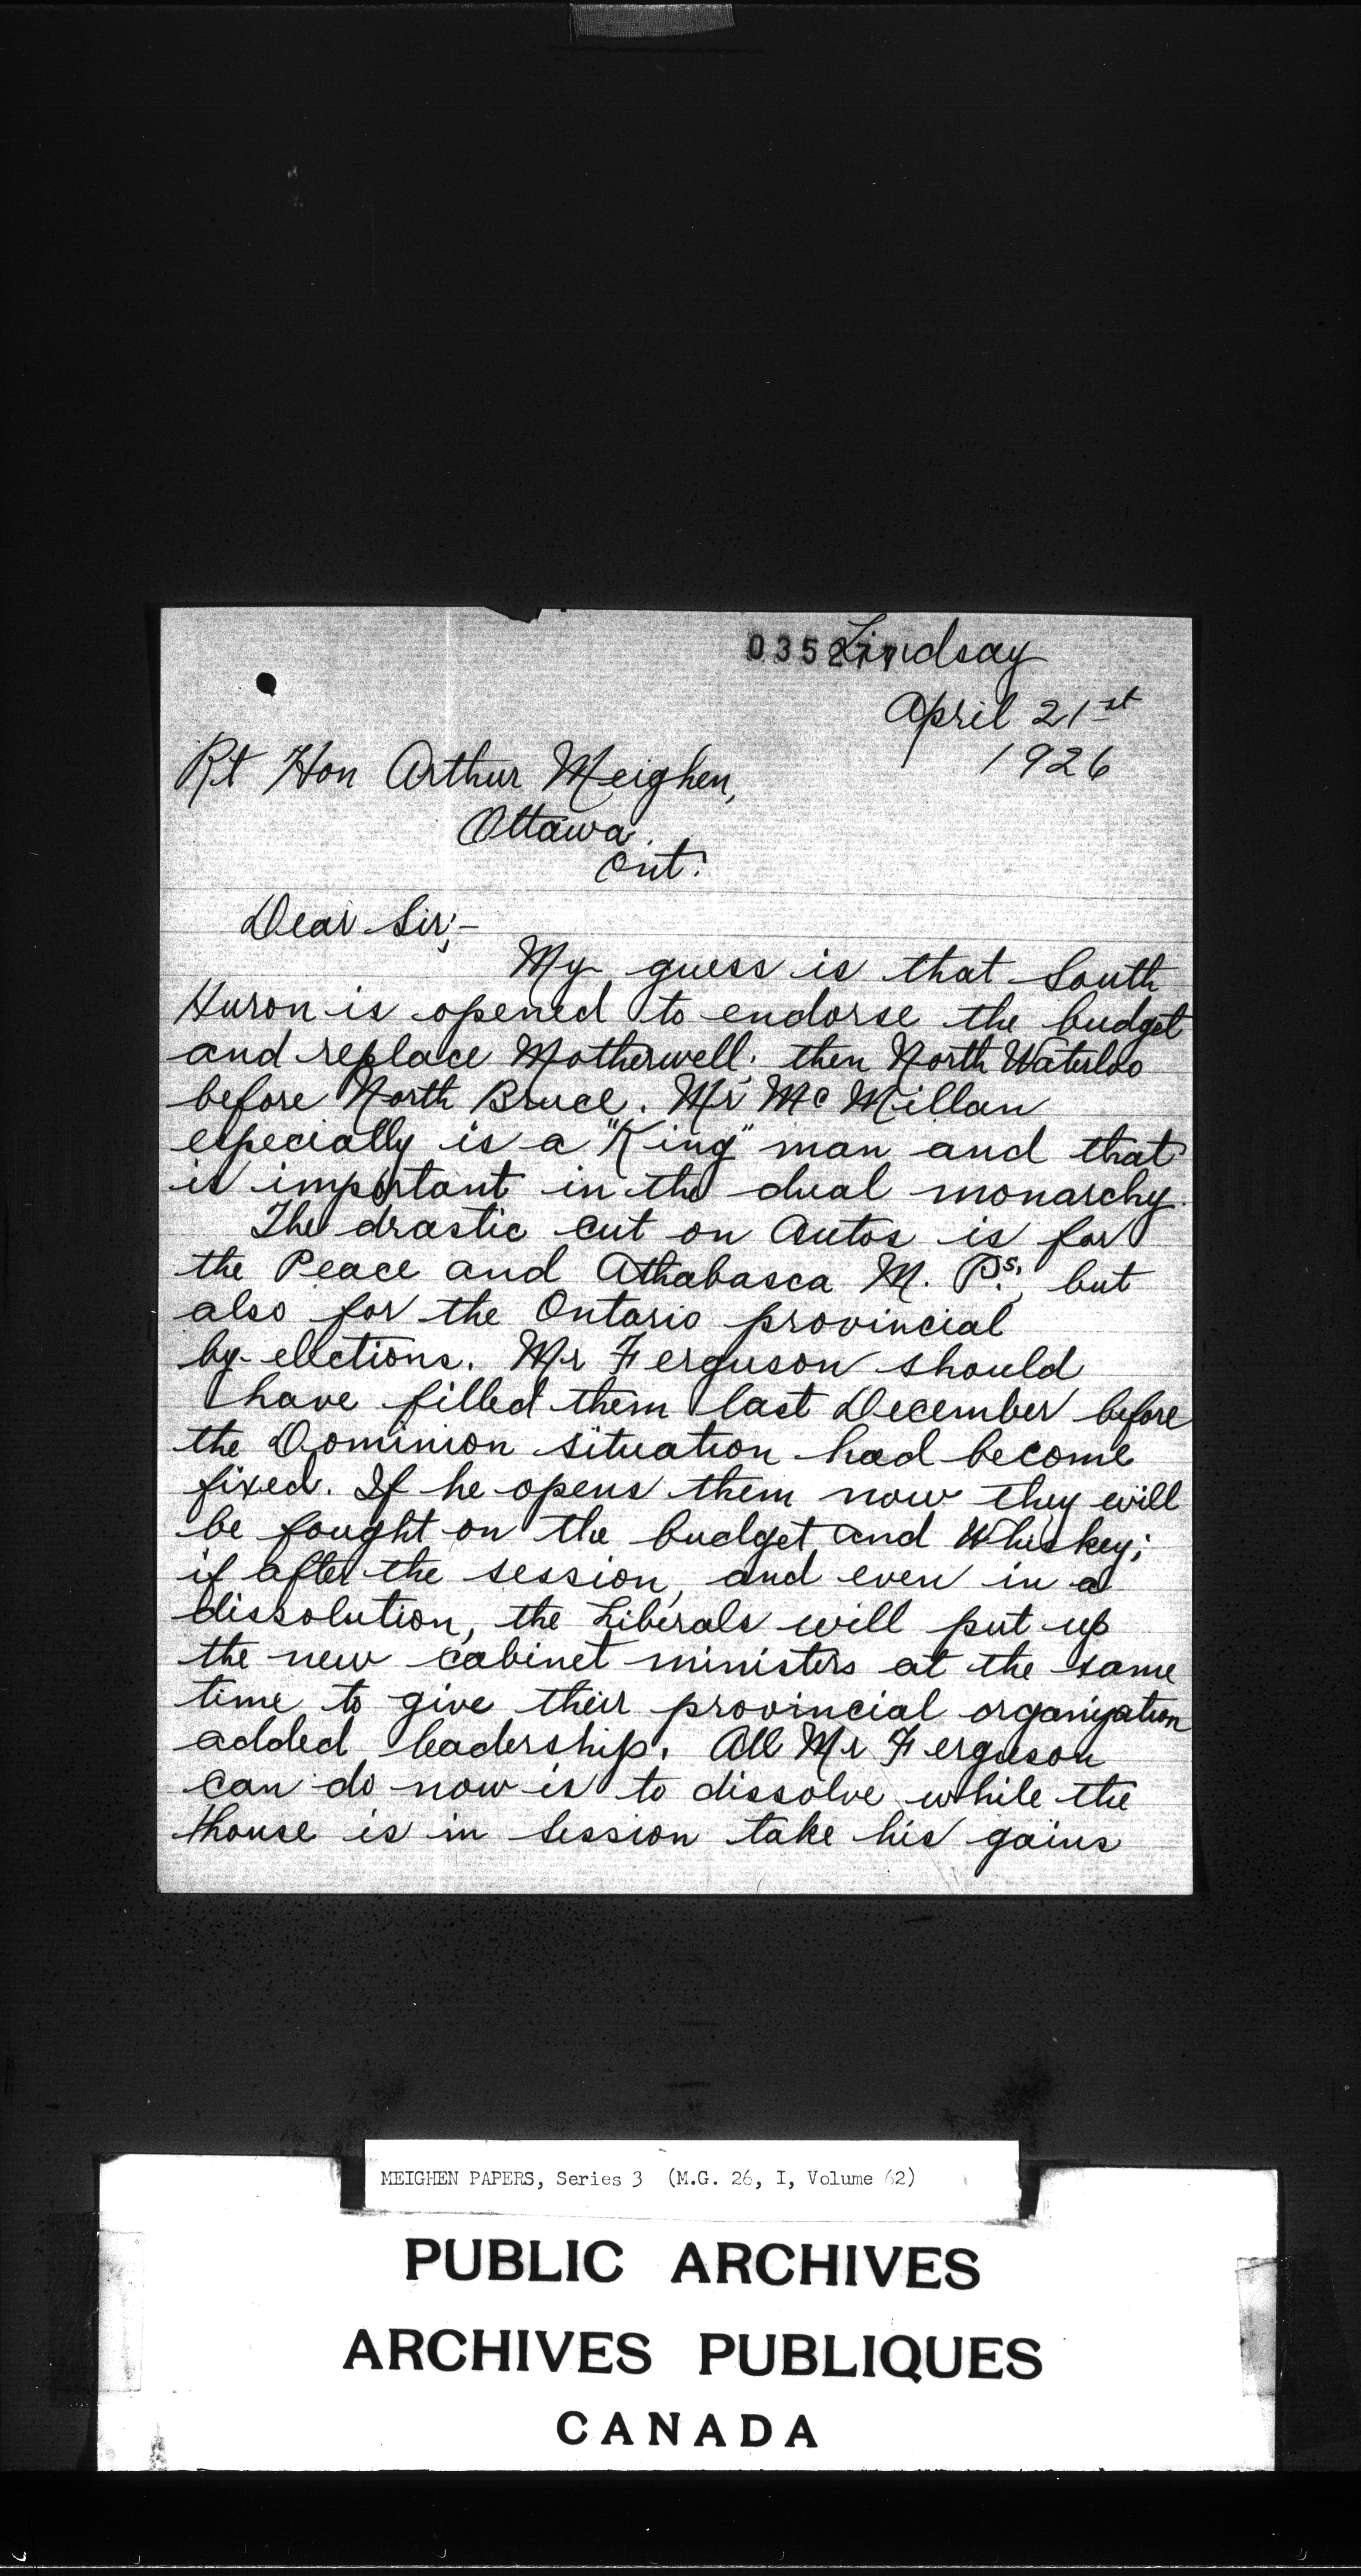 0352 Lindsay
April 21st
1926
Rt Hon Arthur Meighen,
Ottawa.
Ont.
Dear Sir;-
My guess is that South
Huron is opened to endorse the budget
and replace Motherwell; then North Waterloo
before North Bruce. Mr McMillan
especially is a "King" man and that
is important in the dual monarchy.
The drastic cut on autos is for
the Peace and Athabasca M. P.s, but
also for the Ontario provincial
by-elections. Mr Ferguson should
have filled them last December before
the Dominion situation had become
fixed. If he opens them now they will
be fought on the budget and Whiskey;
if after the session, and even in a
dissolution, the Liberals will put up
the new cabinet ministers at the same
time to give their provincial organization
added leadership. All Mr Ferguson
can do now is to dissolve while the
house is in session take his gains
MEIGHEN PAPERS, Series 3 (M.G. 26, I, Volume 62)
PUBLIC ARCHIVES
ARCHIVES PUBLIQUES
CANADA